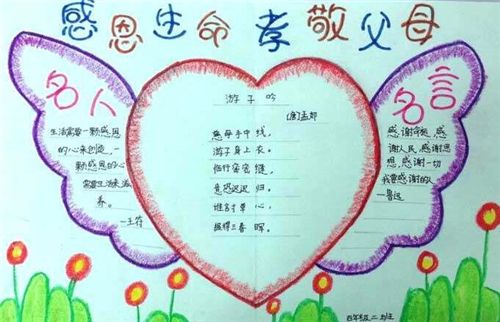 感恩生命 孝敬父母
名人
生活需要一颗感恩
的心来创造，一
颗感恩的心
需要生活来滋
养。
—王符
游子吟
慈母手中线，
游子身上衣。
临行密密缝，
意恐迟迟归。
谁言寸草心，
报得三春晖。
名言
感谢命运，感
谢人民，感谢思
想，感谢一切
我要感谢的人
—鲁迅
四年级二班